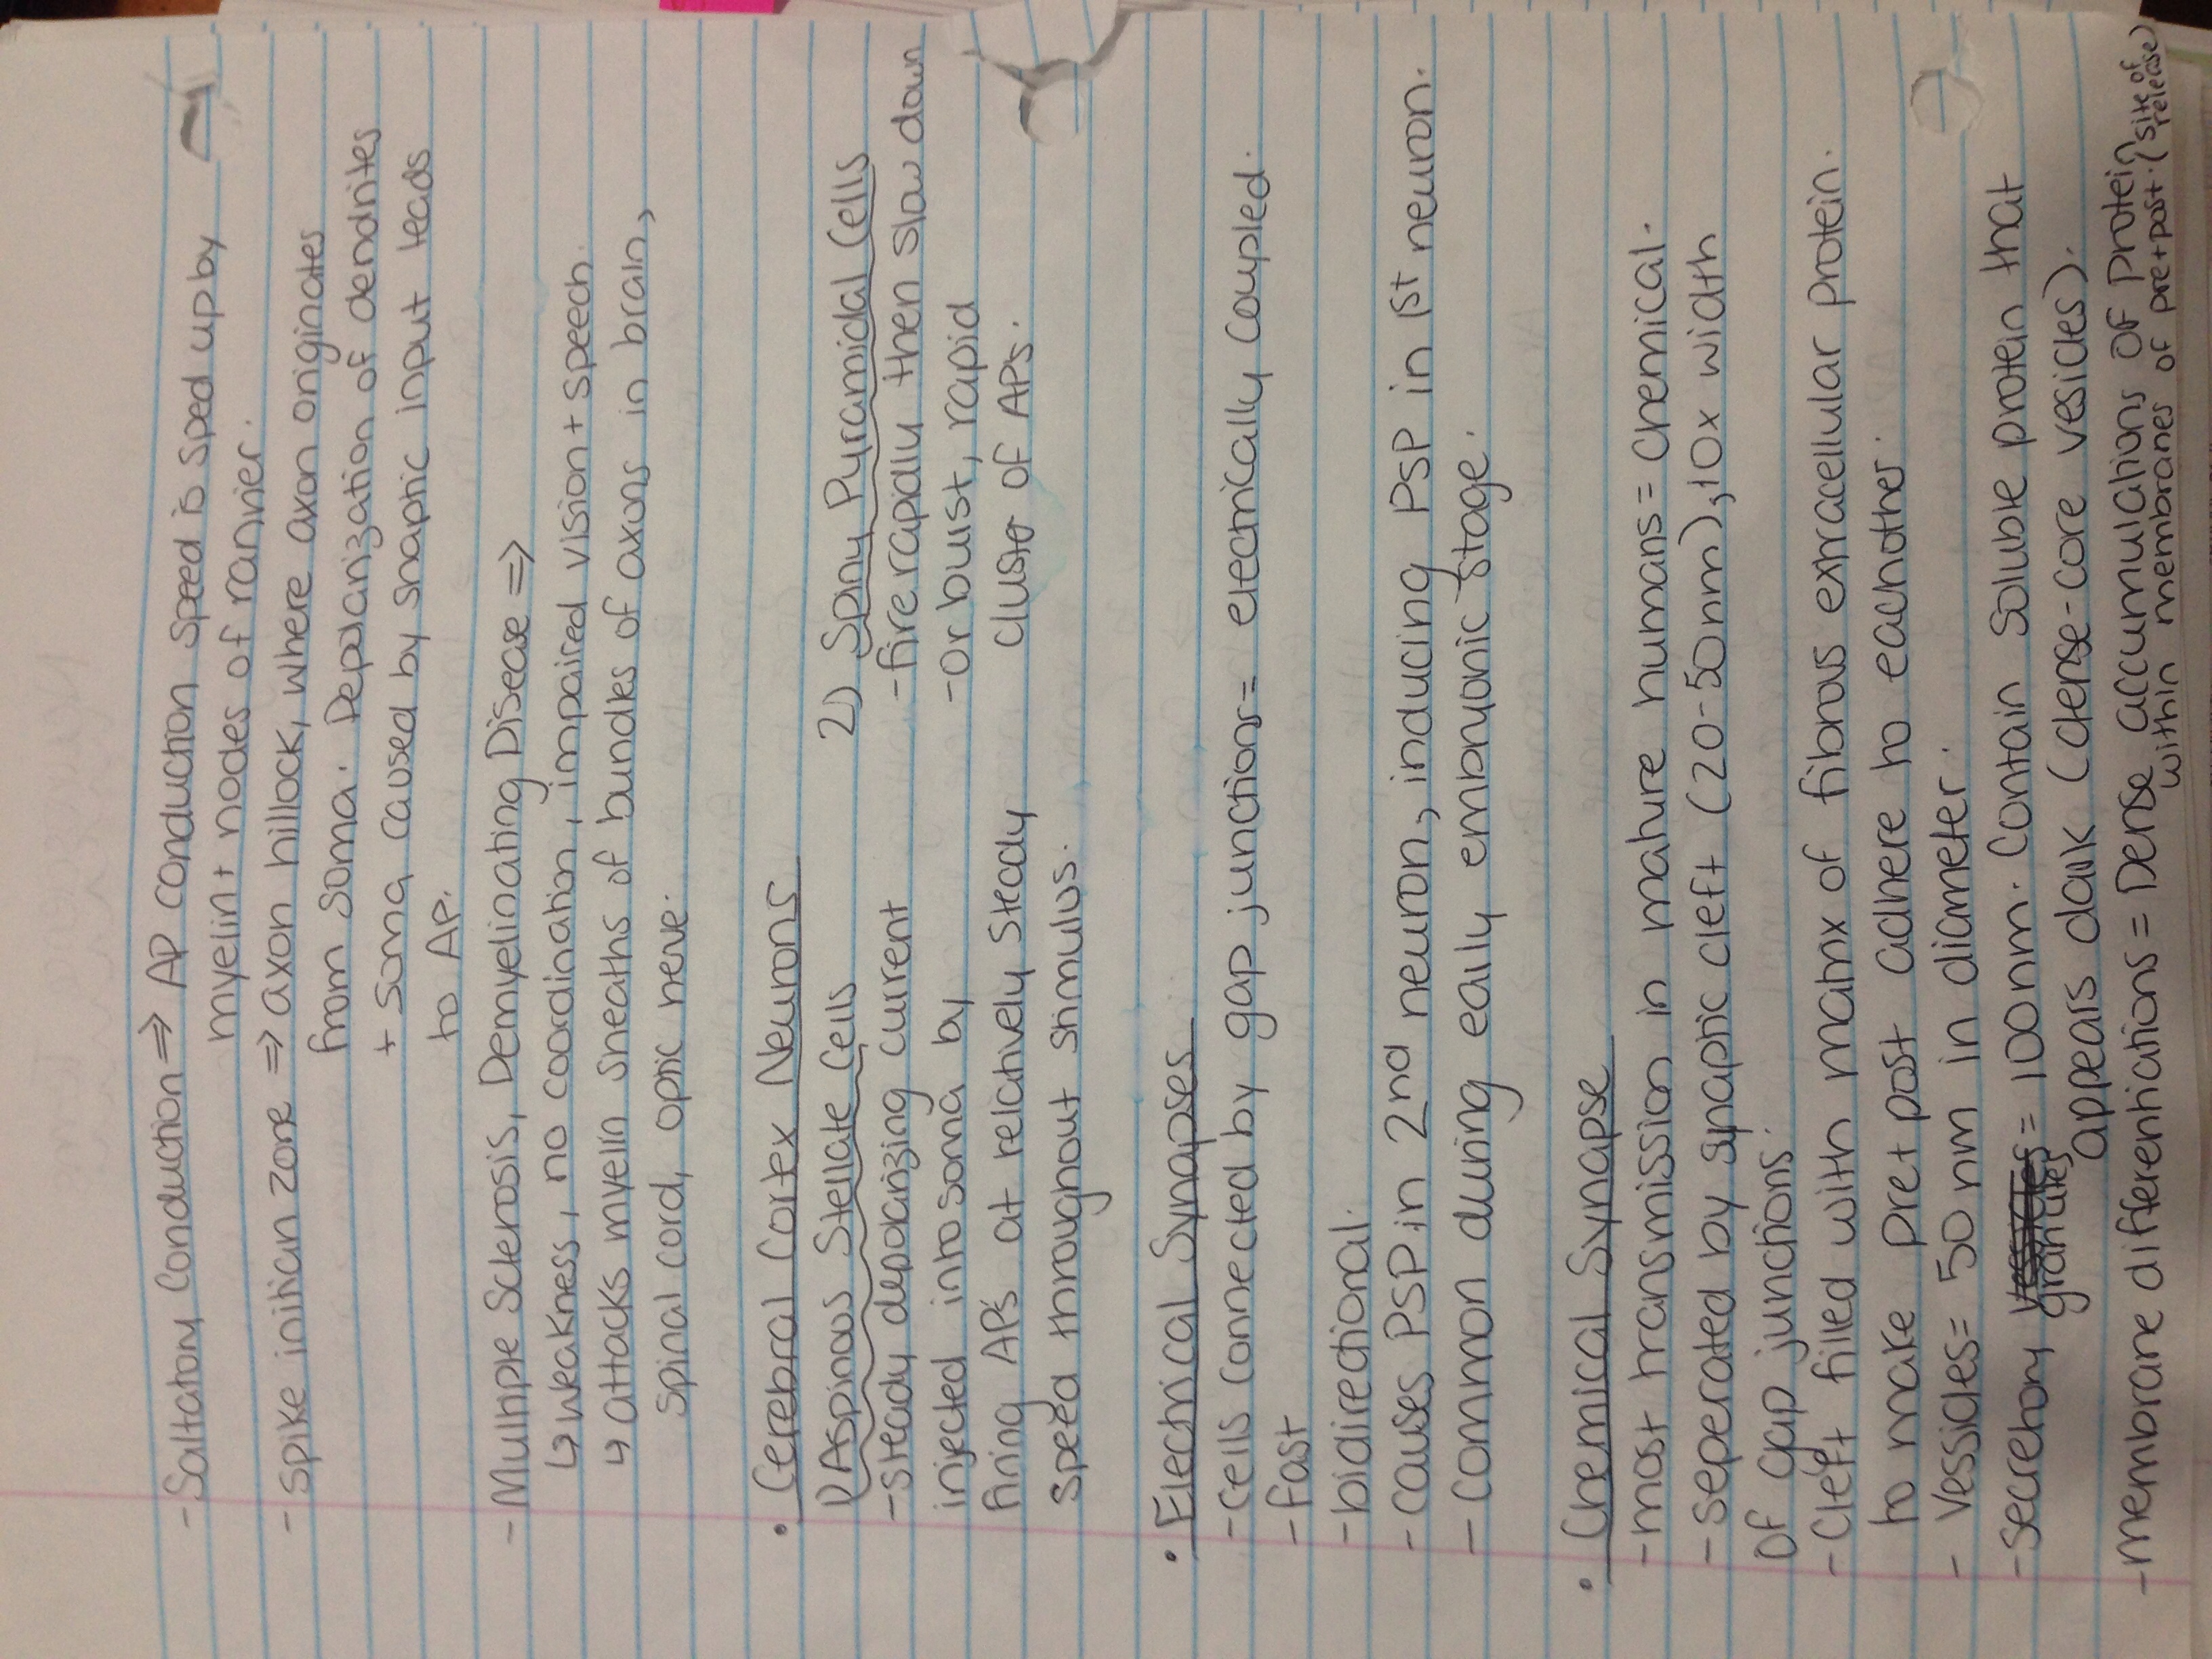 - Saltatory Conduction ⇒ AP conduction speed is sped up by
myelin + nodes of ranvier.
- spike initian zone ⇒ axon hillock, where axon originates
from soma. Depolarization of dendrites
+ soma caused by snaptic input leads
to AP.
- Multiple Sclerosis, Demyelinating Disease ⇒
↳ weakness, no coordination, impaired vision + speech.
↳ attacks myelin sheaths of bundles of axons in brain,
spinal cord, optic nerve.
• Cerebral Cortex Neurons
1) Aspinous Stellate Cells
- steady depolarizing current
injected into soma by
firing AP's at relatively steady
speed throughout stimulus.
2) Spiny Pyramidal Cells
- fire rapidly then slow down
- Or burst, rapid
cluster of APs.
• Electrical Synapses
- Cells connected by gap junctions = electrically coupled.
- fast
- bidirectional.
- causes PSP in 2nd neuron, inducing PSP in 1st neuron.
- Common during early embryonic stage.
• Chemical Synapse
- most transmission in mature humans = chemical.
- seperated by synaptic cleft (20-50nm), 10x width
of gap junctions.
- Cleft filled with matrix of fibrous extracellular protein.
to make pre + post adhere to eachother.
- vessicles = 50 nm in diameter.
- secretory granules = 100nm. Contain soluble protein that
appears dark (dense-core vesicles).
- membrane differentiations = Dense accumulations of protein
within membranes of pre + post. (site of
release)